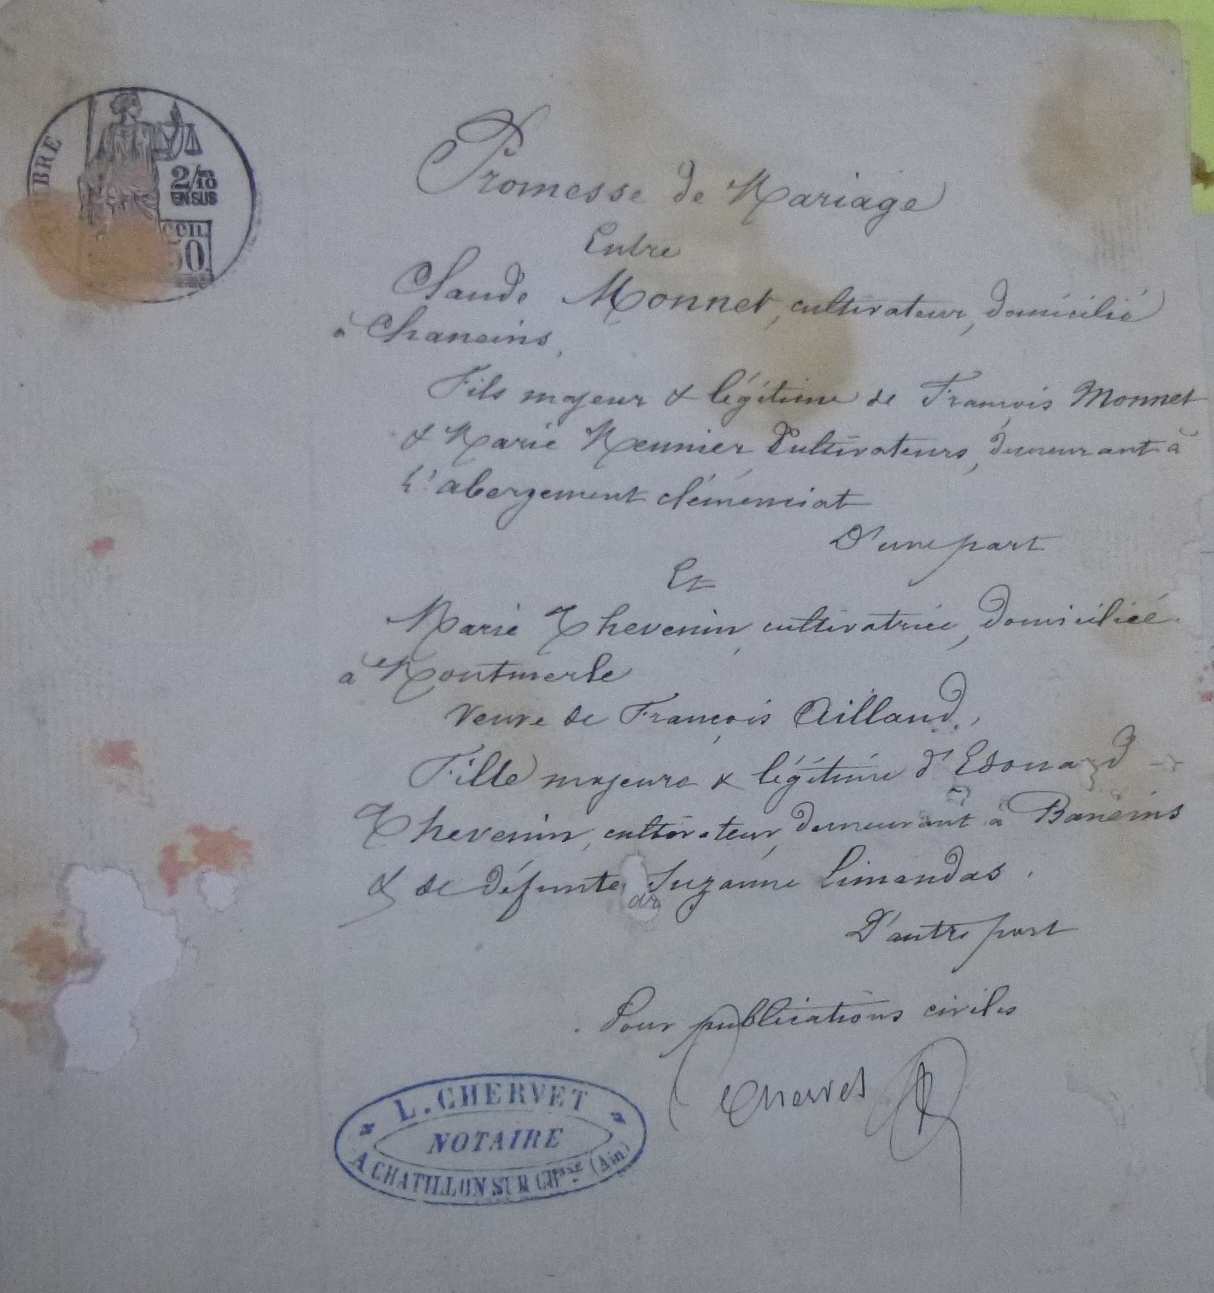 BRE
2/10
EN SUS
CEN.
50
Promesse de Mariage
Entre
Claude Monnet, cultivateur, domicilié
à Chaneins,
Fils majeur & légitime de François Monnet
& Marie Meunier Cultivateurs, demeurant à
L'abergement clémenciat
D'une part
Et
Marie Thevenin, cultivatrice, domiciliée
à Montmerle
Veuve de François Aillaud,
Fille majeure & légitime d'Edouard
Thevenin, cultivateur, demeurant à Baneins
& de défunte Suzanne Limandas.
D'autre part
Pour publications civiles
Chervet
L. CHERVET
NOTAIRE
A CHATILLON SUR CH.nne (Ain)